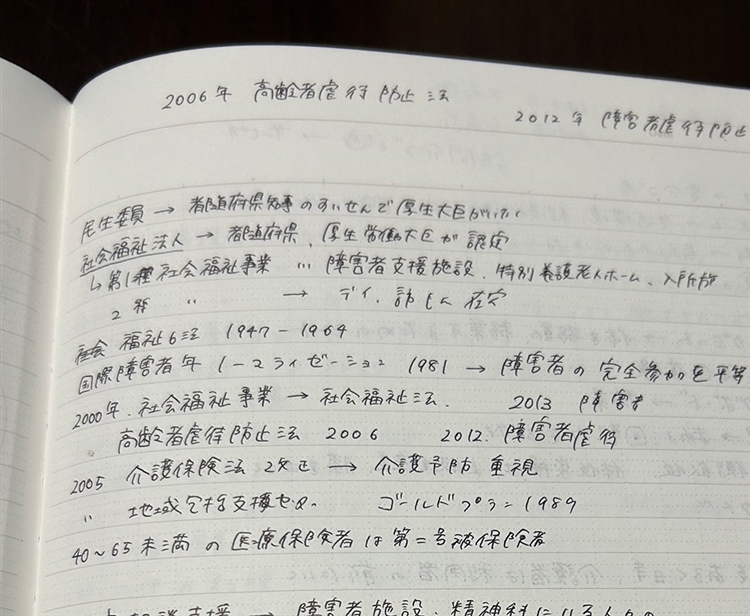 2006年 高齢者虐待防止法
2012年 障害者虐待防止
民生委員 → 都道府県知事のすいせんで厚生大臣がいしょく
社会福祉法人 → 都道府県、厚生労働大臣が認定
↳第1種社会福祉事業 … 障害者支援施設、特別養護老人ホーム、入所施
2種 〃 → デイ、訪もん 在宅
社会福祉6法 1947-1964
国際障害者年 ノーマライゼーション 1981 → 障害者の完全参加と平等
2000年、社会福祉事業 → 社会福祉法. 2013 障害者
高齢者虐待防止法 2006 2012. 障害者虐待
2005 介護保険法改正 → 介護予防 重視
〃 地域包括支援センター ゴールドプラン 1989
40~65未満の医療保険者は第二号被保険者
相談支援 → 障害者施設、精神科にいる人の